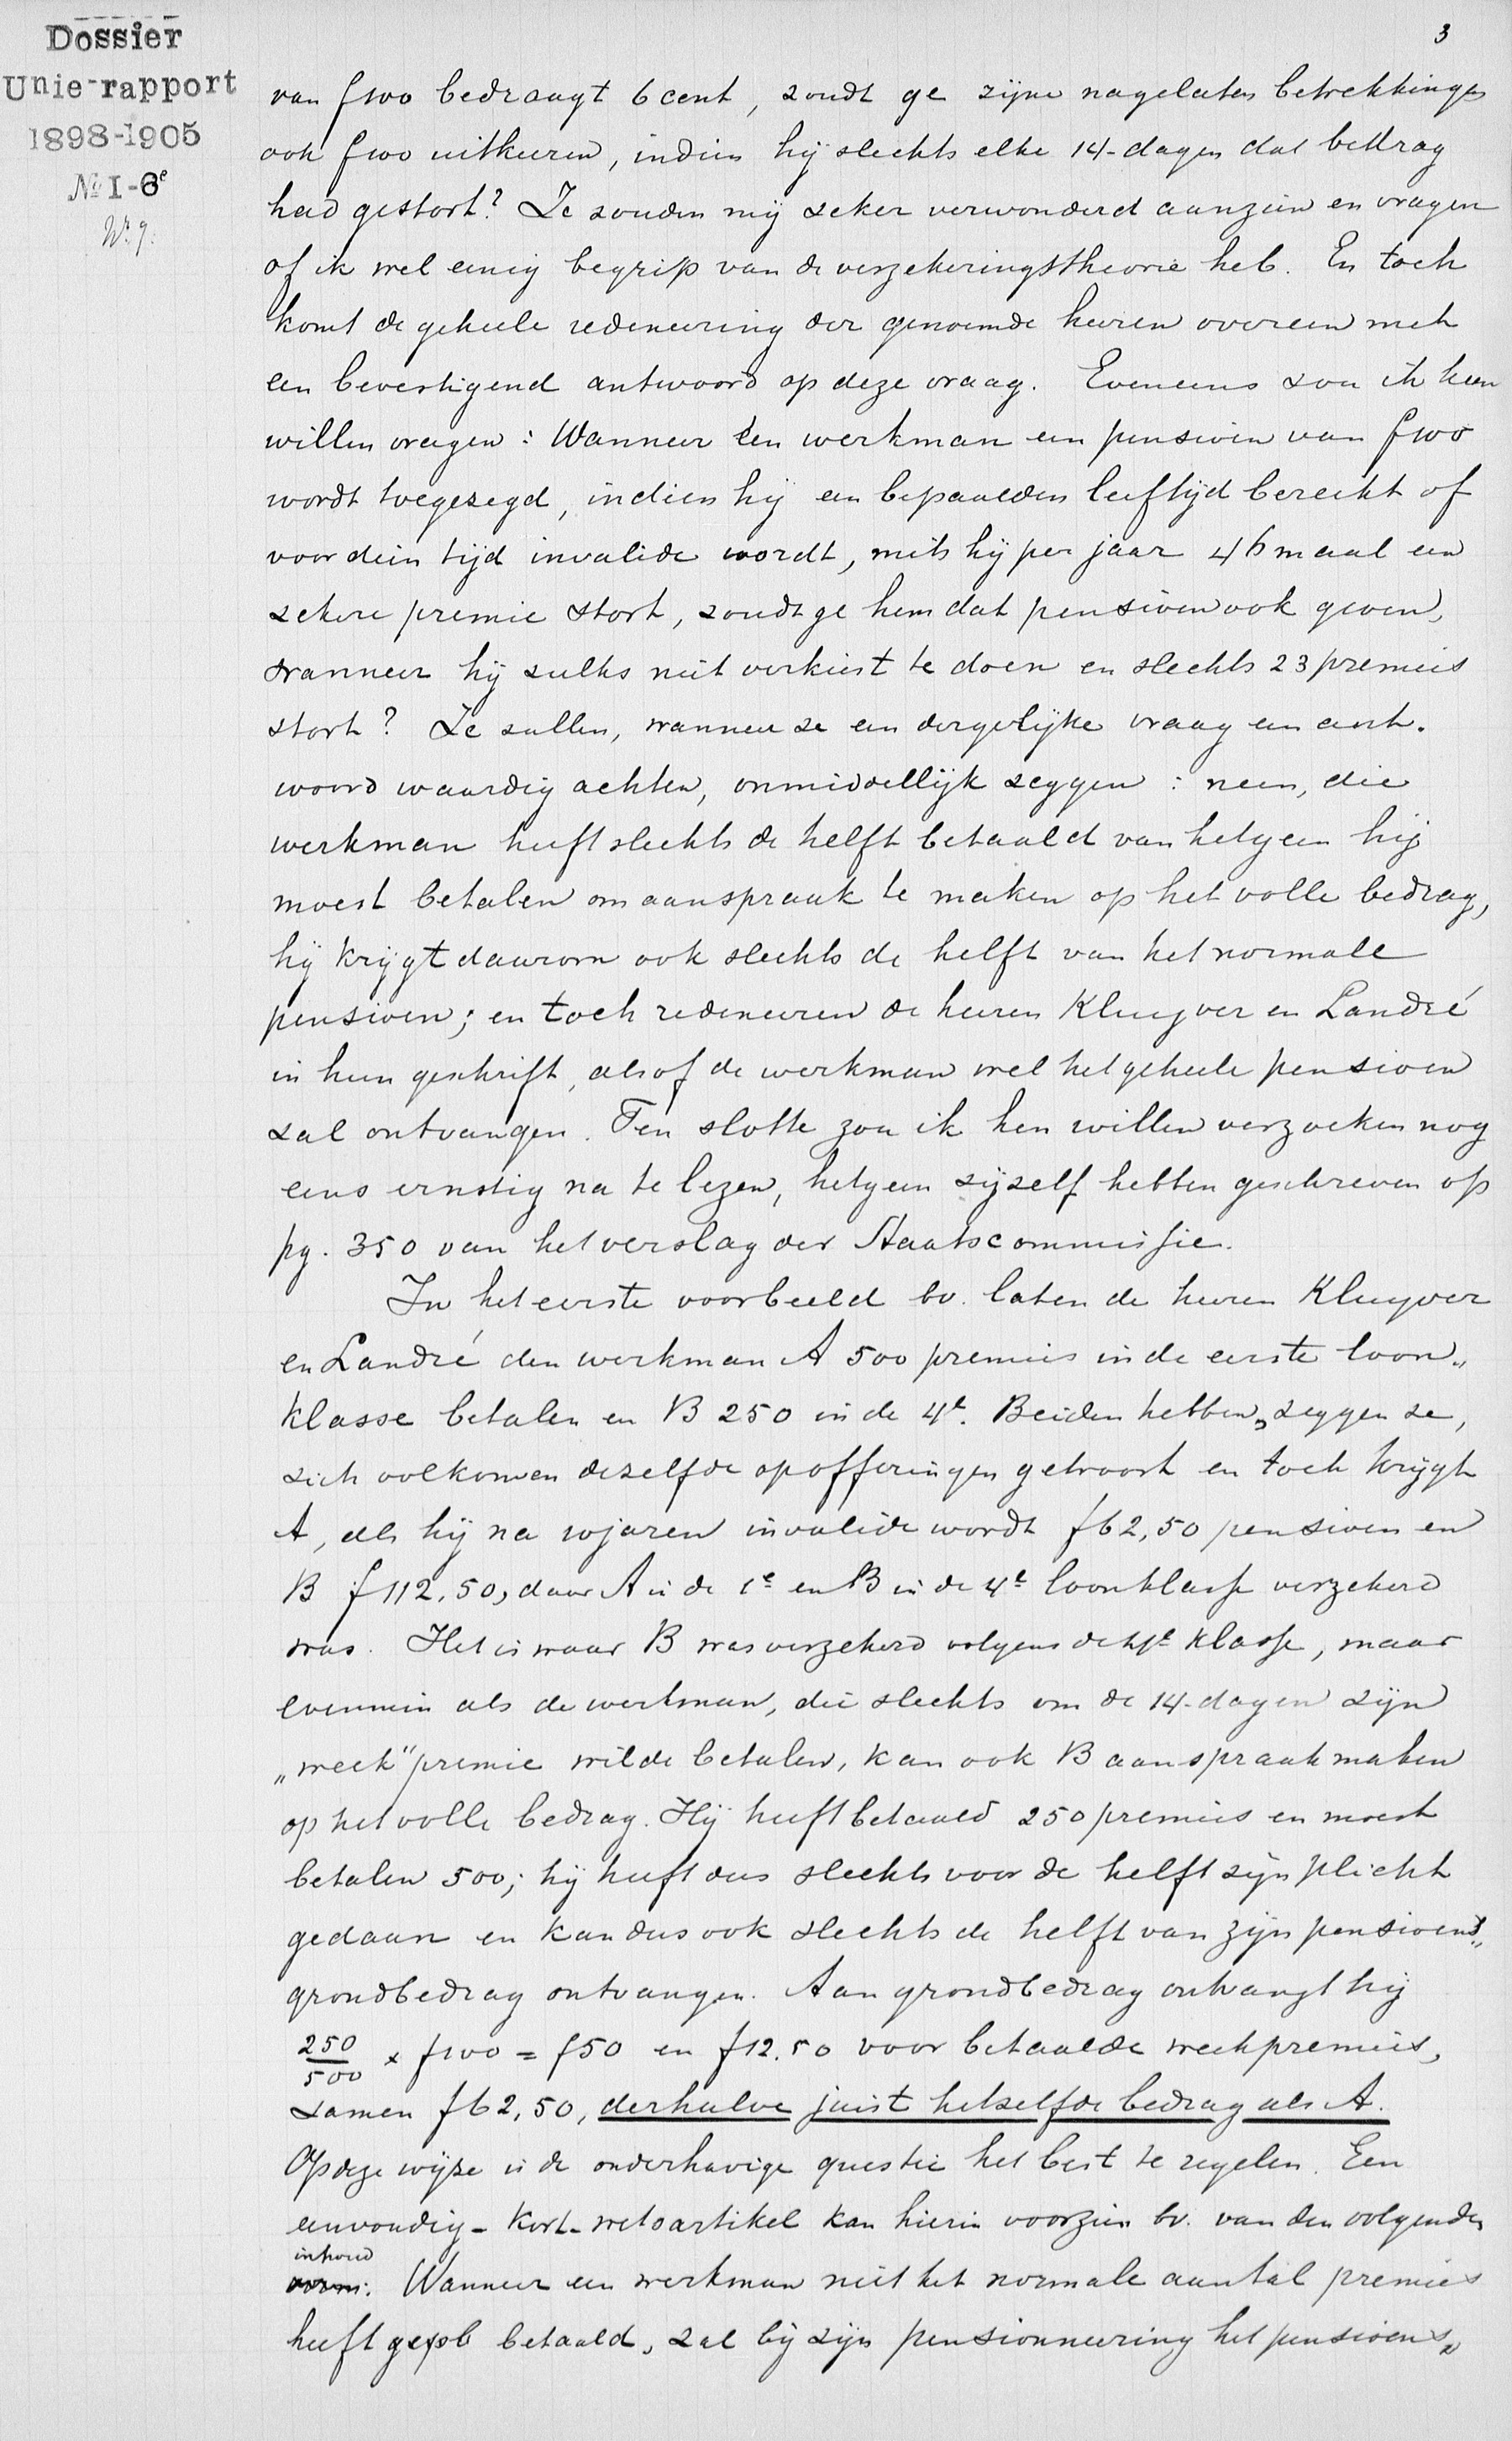 Dossier
Unie-rapport
1898-1905
No I-6e
No 9.
3
van f100 bedraagt 6 cent, zoudt ge zijne nagelaten betrekkingen
ook f100 uitkeeren, indien hij slechts elke 14-dagen dat bedrag
had gestort? Ze zouden mij zeker verwonderd aanzien en vragen
of ik wel eenig begrip van de verzekeringstheorie heb. En toch
komt de geheele redeneering der genoemde heeren overeen met
een bevestigend antwoord op deze vraag. Eveneens zou ik hen
willen vragen: Wanneer een werkman een pensioen van f100
wordt toegezegd, indien hij een bepaalden leeftijd bereikt of
voor dien tijd invalide wordt, mits hij per jaar 46 maal een
zekere premie stort, zoudt ge hem dat pensioen ook geven,
wanneer hij zulks niet verkiest te doen en slechts 23 premies
stort? Ze zullen, wanneer ze een dergelijke vraag een ant-
woord waardig achten, onmiddellijk zeggen: neen, die
werkman heeft slechts de helft betaald van hetgeen hij
moest betalen om aanspraak te maken op het volle bedrag,
hij krijgt daarom ook slechts de helft van het normale
pensioen; en toch redeneeren de heeren Kluyver en Landré
in hun geschrift, alsof de werkman wel het geheele pensioen
zal ontvangen. Ten slotte zou ik hen willen verzoeken nog
eens ernstig na te lezen, hetgeen zijzelf hebben geschreven op
pg. 350 van het verslag der Staatscommissie.
In het eerste voorbeeld bv. laten de heeren Kluyver
en Landré den werkman A 500 premies in de eerste loon„
klasse betalen en B 250 in de 4e. Beiden hebben, zeggen ze,
zich volkomen dezelfde opofferingen getroost en toch krijgt
A, als hij na 10 jaren invalide wordt f62,50 pensioen en
B f112,50, daar A in de 1e en B in de 4e loonklasse verzekerd
was. Het is waar B was verzekerd volgens de 4e klasse, maar
evenmin als de werkman, die slechts om de 14-dagen zijn
„week" premie wilde betalen, kan ook B aanspraak maken
op het volle bedrag. Hij heeft betaald 250 premies en moest
betalen 500; hij heeft dus slechts voor de helft zijn plicht
gedaan en kan dus ook slechts de helft van zijn pensioens„
grondbedrag ontvangen. Aan grondbedrag ontvangt hij
250/500 x f100 = f50 en f12.50 voor betaalde weekpremies,
samen f62,50, derhalve juist hetzelfde bedrag als A.
Op deze wijze is de onderhavige questie het best te regelen. Een
eenvoudig - kort - wetsartikel kan hierin voorzien bv. van den volgenden
inhoud
vorm: Wanneer een werkman niet het normale aantal premies
heeft betaald, zal bij zijn pensionneering het pensioens„